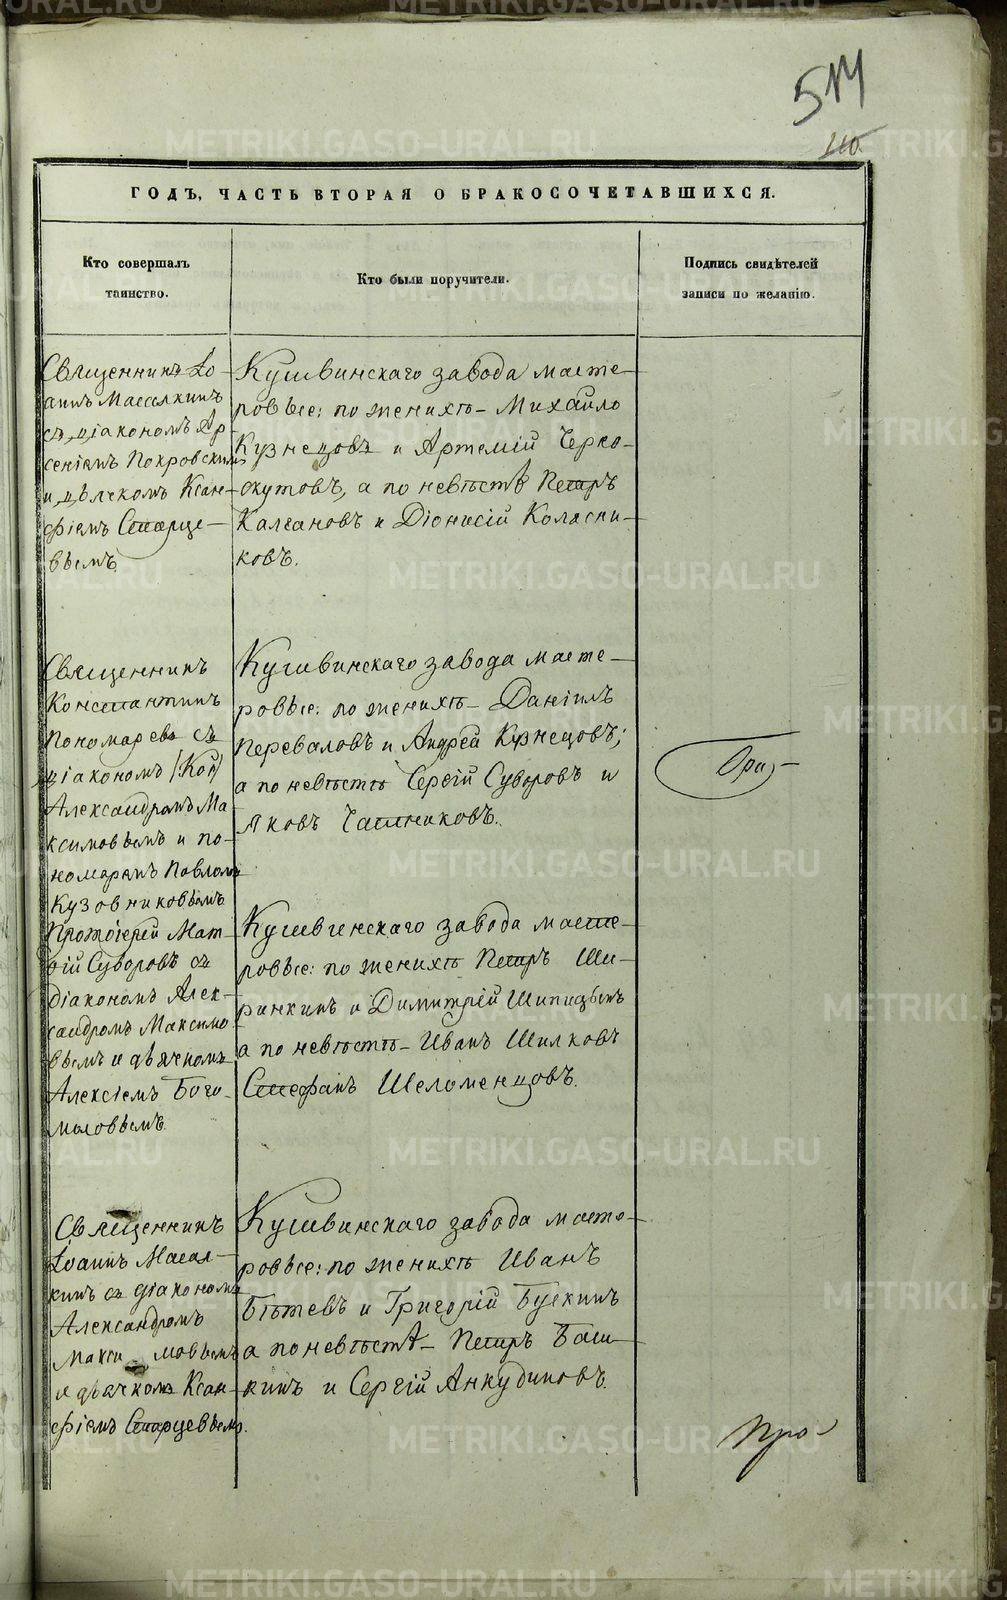 514
110
ГОДЪ, ЧАСТЬ ВТОРАЯ О БРАКОСОЧЕТАВШИХСЯ.
Кто совершалъ
таинство.
Кто были поручители.
Подпись свидѣтелей
записи по желанію.
Священникъ Іо-
аннъ Масалкинъ
съ діакономъ Ар-
сеніемъ Покровскимъ
и дьячкомъ Ксан-
фіемъ Старце-
вымъ.
Кушвинскаго завода масте-
ровые: по женихѣ - Михайло
Кузнецовъ и Артемій Черно-
скутовъ, а по невѣстѣ Петръ
Калгановъ и Діонисій Колясни-
ковъ.
Священникъ
Константинъ
Пономаревъ съ
діакономъ
Александромъ Ма-
ксимовымъ и по-
номаремъ Павломъ
Кузовниковымъ
Кушвинскаго завода масте-
ровые: по женихѣ - Даніилъ
Переваловъ и Андрей Кузнецовъ;
а по невѣстѣ Сергій Суворовъ и
Яковъ Чашниковъ.
Протоіерей Мат-
фій Суворовъ съ
діакономъ Алек-
сандромъ Максимо-
вымъ и дьячкомъ
Алексіемъ Бого-
моловымъ.
Кушвинскаго завода масте-
ровые: по женихѣ Петръ Ши-
ринкинъ и Димитрій Шипицынъ
а по невѣстѣ - Иванъ Шилковъ
Стефанъ Шеломенцовъ.
Священникъ
Іоаннъ Масал-
кинъ съ діакономъ
Александромъ
Макси мовымъ
и дьячкомъ Ксан-
фіемъ Старцевымъ.
Кушвинскаго завода масте-
ровые: по женихѣ Иванъ
Бѣтевъ и Григорій Бускинъ
а по невѣстѣ - Петръ Баш-
кинъ и Сергій Анкудиновъ.
Про-
METRIKI.GASO-URAL.RU